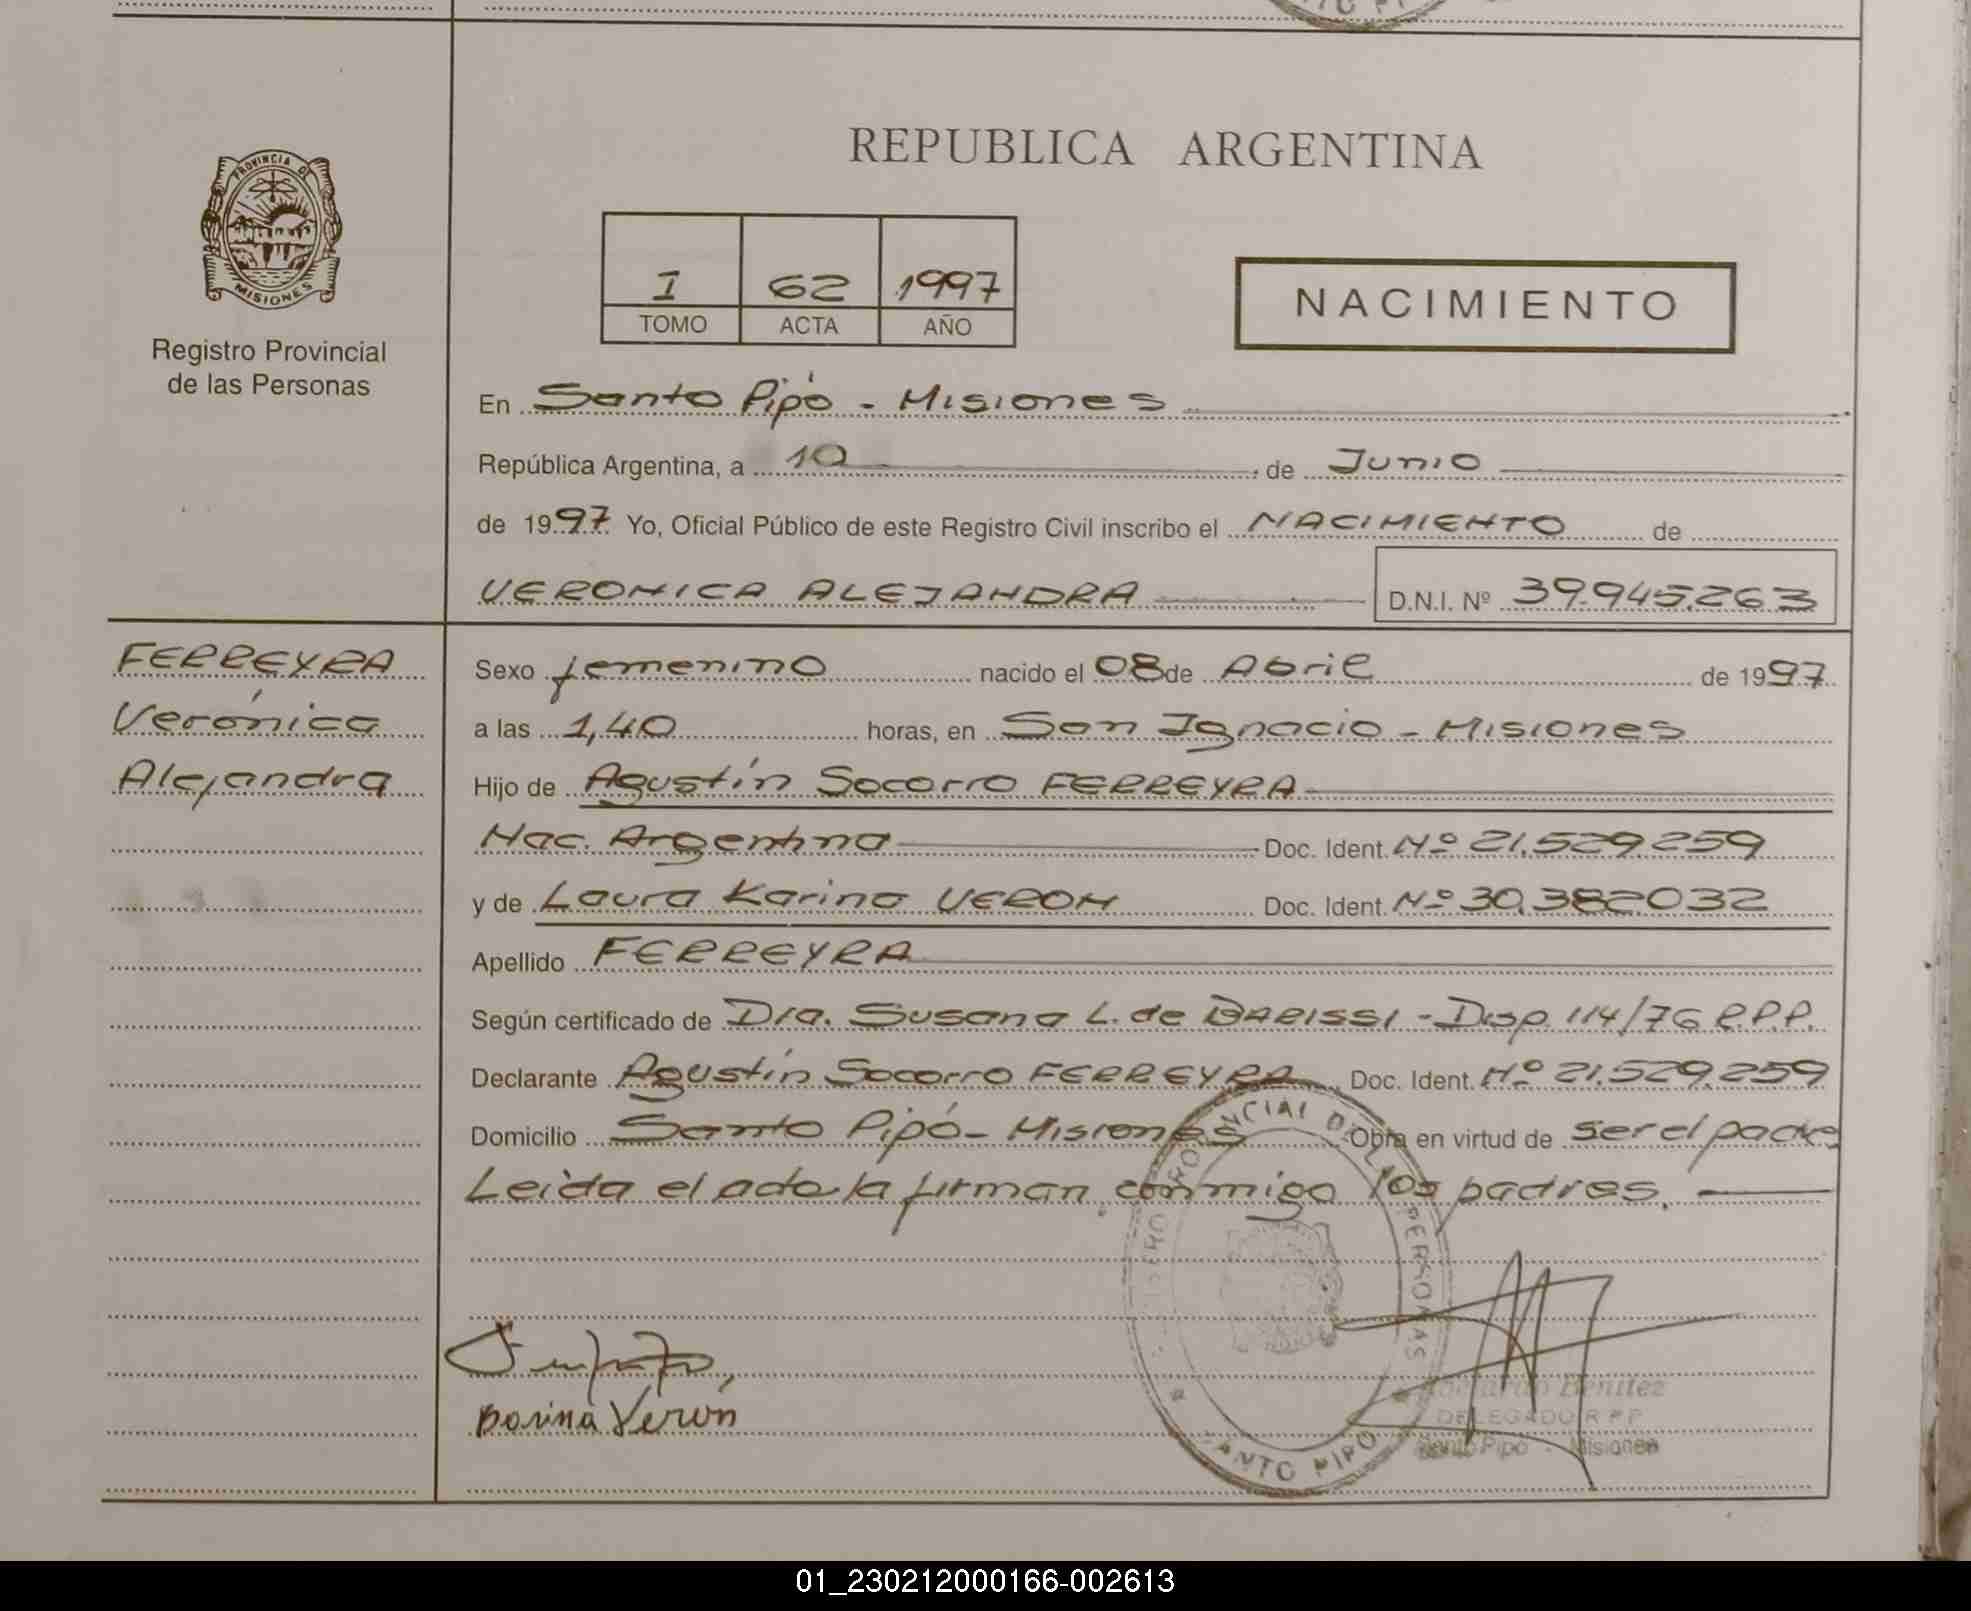 REPUBLICA ARGENTINA
PROVINCIA DE
MISIONES
Registro Provincial
de las Personas
I 62 1997
TOMO ACTA AÑO
NACIMIENTO
En Santo Pipó - Misiones
República Argentina, a 10 de Junio
de 1997 Yo, Oficial Público de este Registro Civil inscribo el NACIMIENTO de
VERONICA ALEJANDRA D.N.I. Nº 39.945.263
FERREYRA
Verónica
Alejandra
Sexo femenino nacido el 08 de Abril de 1997
a las 1,40 horas, en San Ignacio - Misiones
Hijo de Agustín Socorro FERREYRA
Nac. Argentina Doc. Ident. Nº 21.529.259
y de Laura Karina VERON Doc. Ident. Nº 30.382032
Apellido FERREYRA
Según certificado de Dra. Susana L. de BARISSI - Disp. 114/76 R.P.P.
Declarante Agustín Socorro FERREYRA Doc. Ident. Nº 21.529.259
Domicilio Santo Pipó - Misiones Obra en virtud de ser el padre
Leida el acta la firman conmigo los padres.
Verón
Benitez
DELEGADO R.P.P.
Santo Pipó - Misiones
SANTO PIPO
01_230212000166-002613